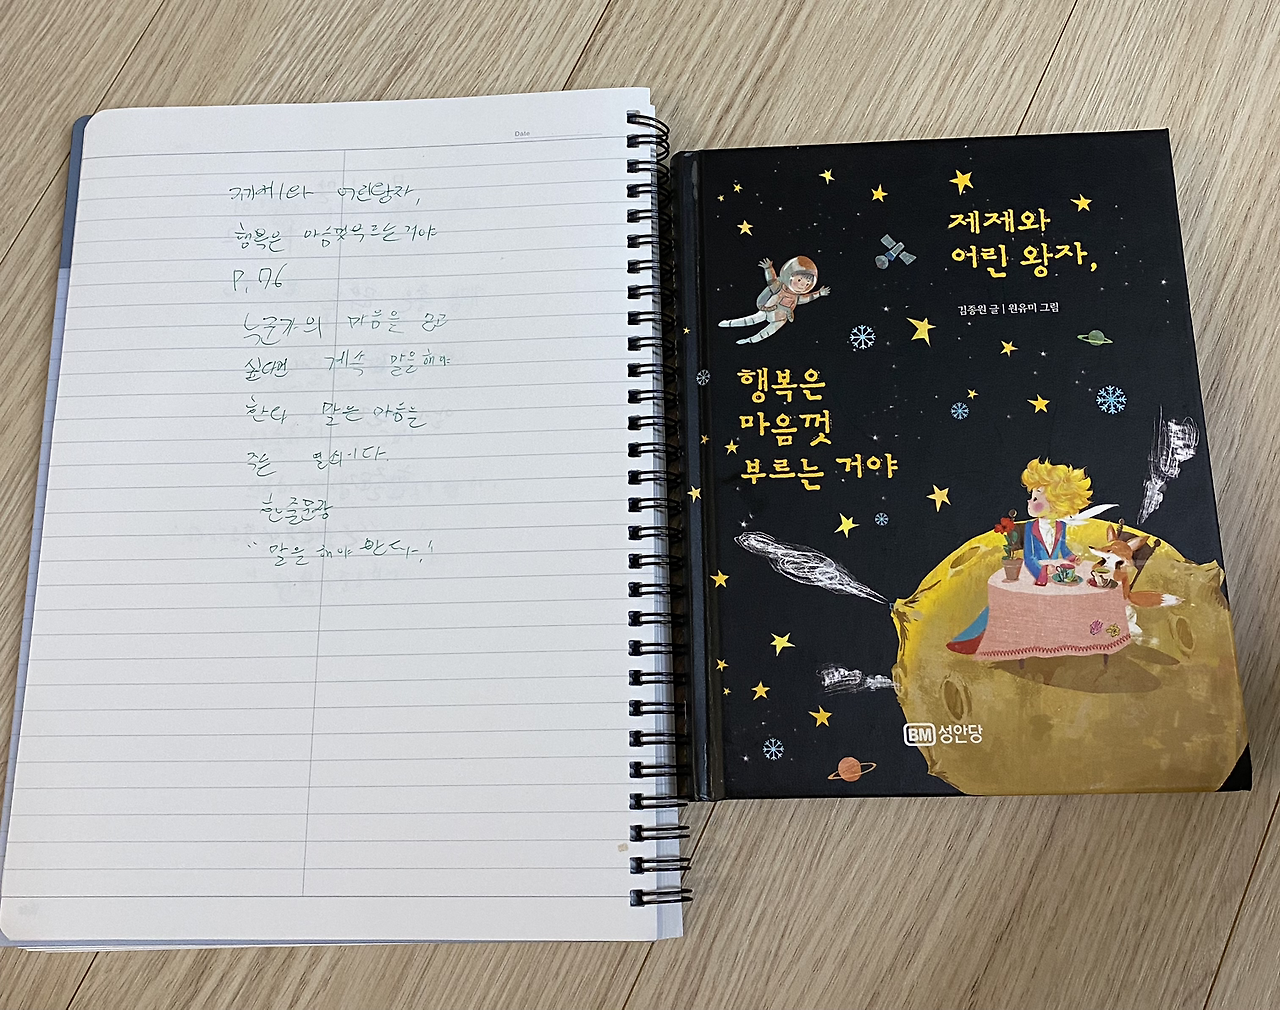 Date
제제와 어린왕자,
행복은 마음껏 부르는 거야
P. 76
누군가의 마음을 얻고
싶다면 계속 말을 해야
한다 말은 마음을
주는 열쇠이다
한줄문장
"말을 해야 한다."
제제와
어린 왕자,
김종원 글 | 원유미 그림
행복은
마음껏
부르는 거야
BM 성안당